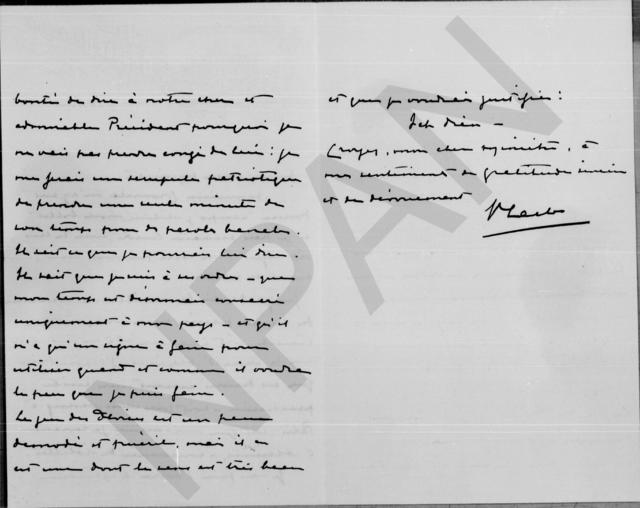 bonté de dire à notre cher et
admirable Président pourquoi je
ne vais pas prendre congé de lui : je
me ferais un scrupule patriotique
de prendre une seule minute de
son temps pour des paroles banales.
Il sait ce que je pourrais lui dire.
Il sait que je suis à ses ordres – que
mon temps est désormais consacré
uniquement à mon pays – et qu'il
n'a qu'un signe à faire pour
utiliser quand et comme il voudra
le peu que je puis faire.
Le jeu des Devises est un peu
démodé et puéril, mais il en
est une dont le sens est très beau
et que je voudrais justifier :
Ich dien –
Croyez, mon cher ministre, à
mes sentiments de gratitude
et de dévouement
NPAN